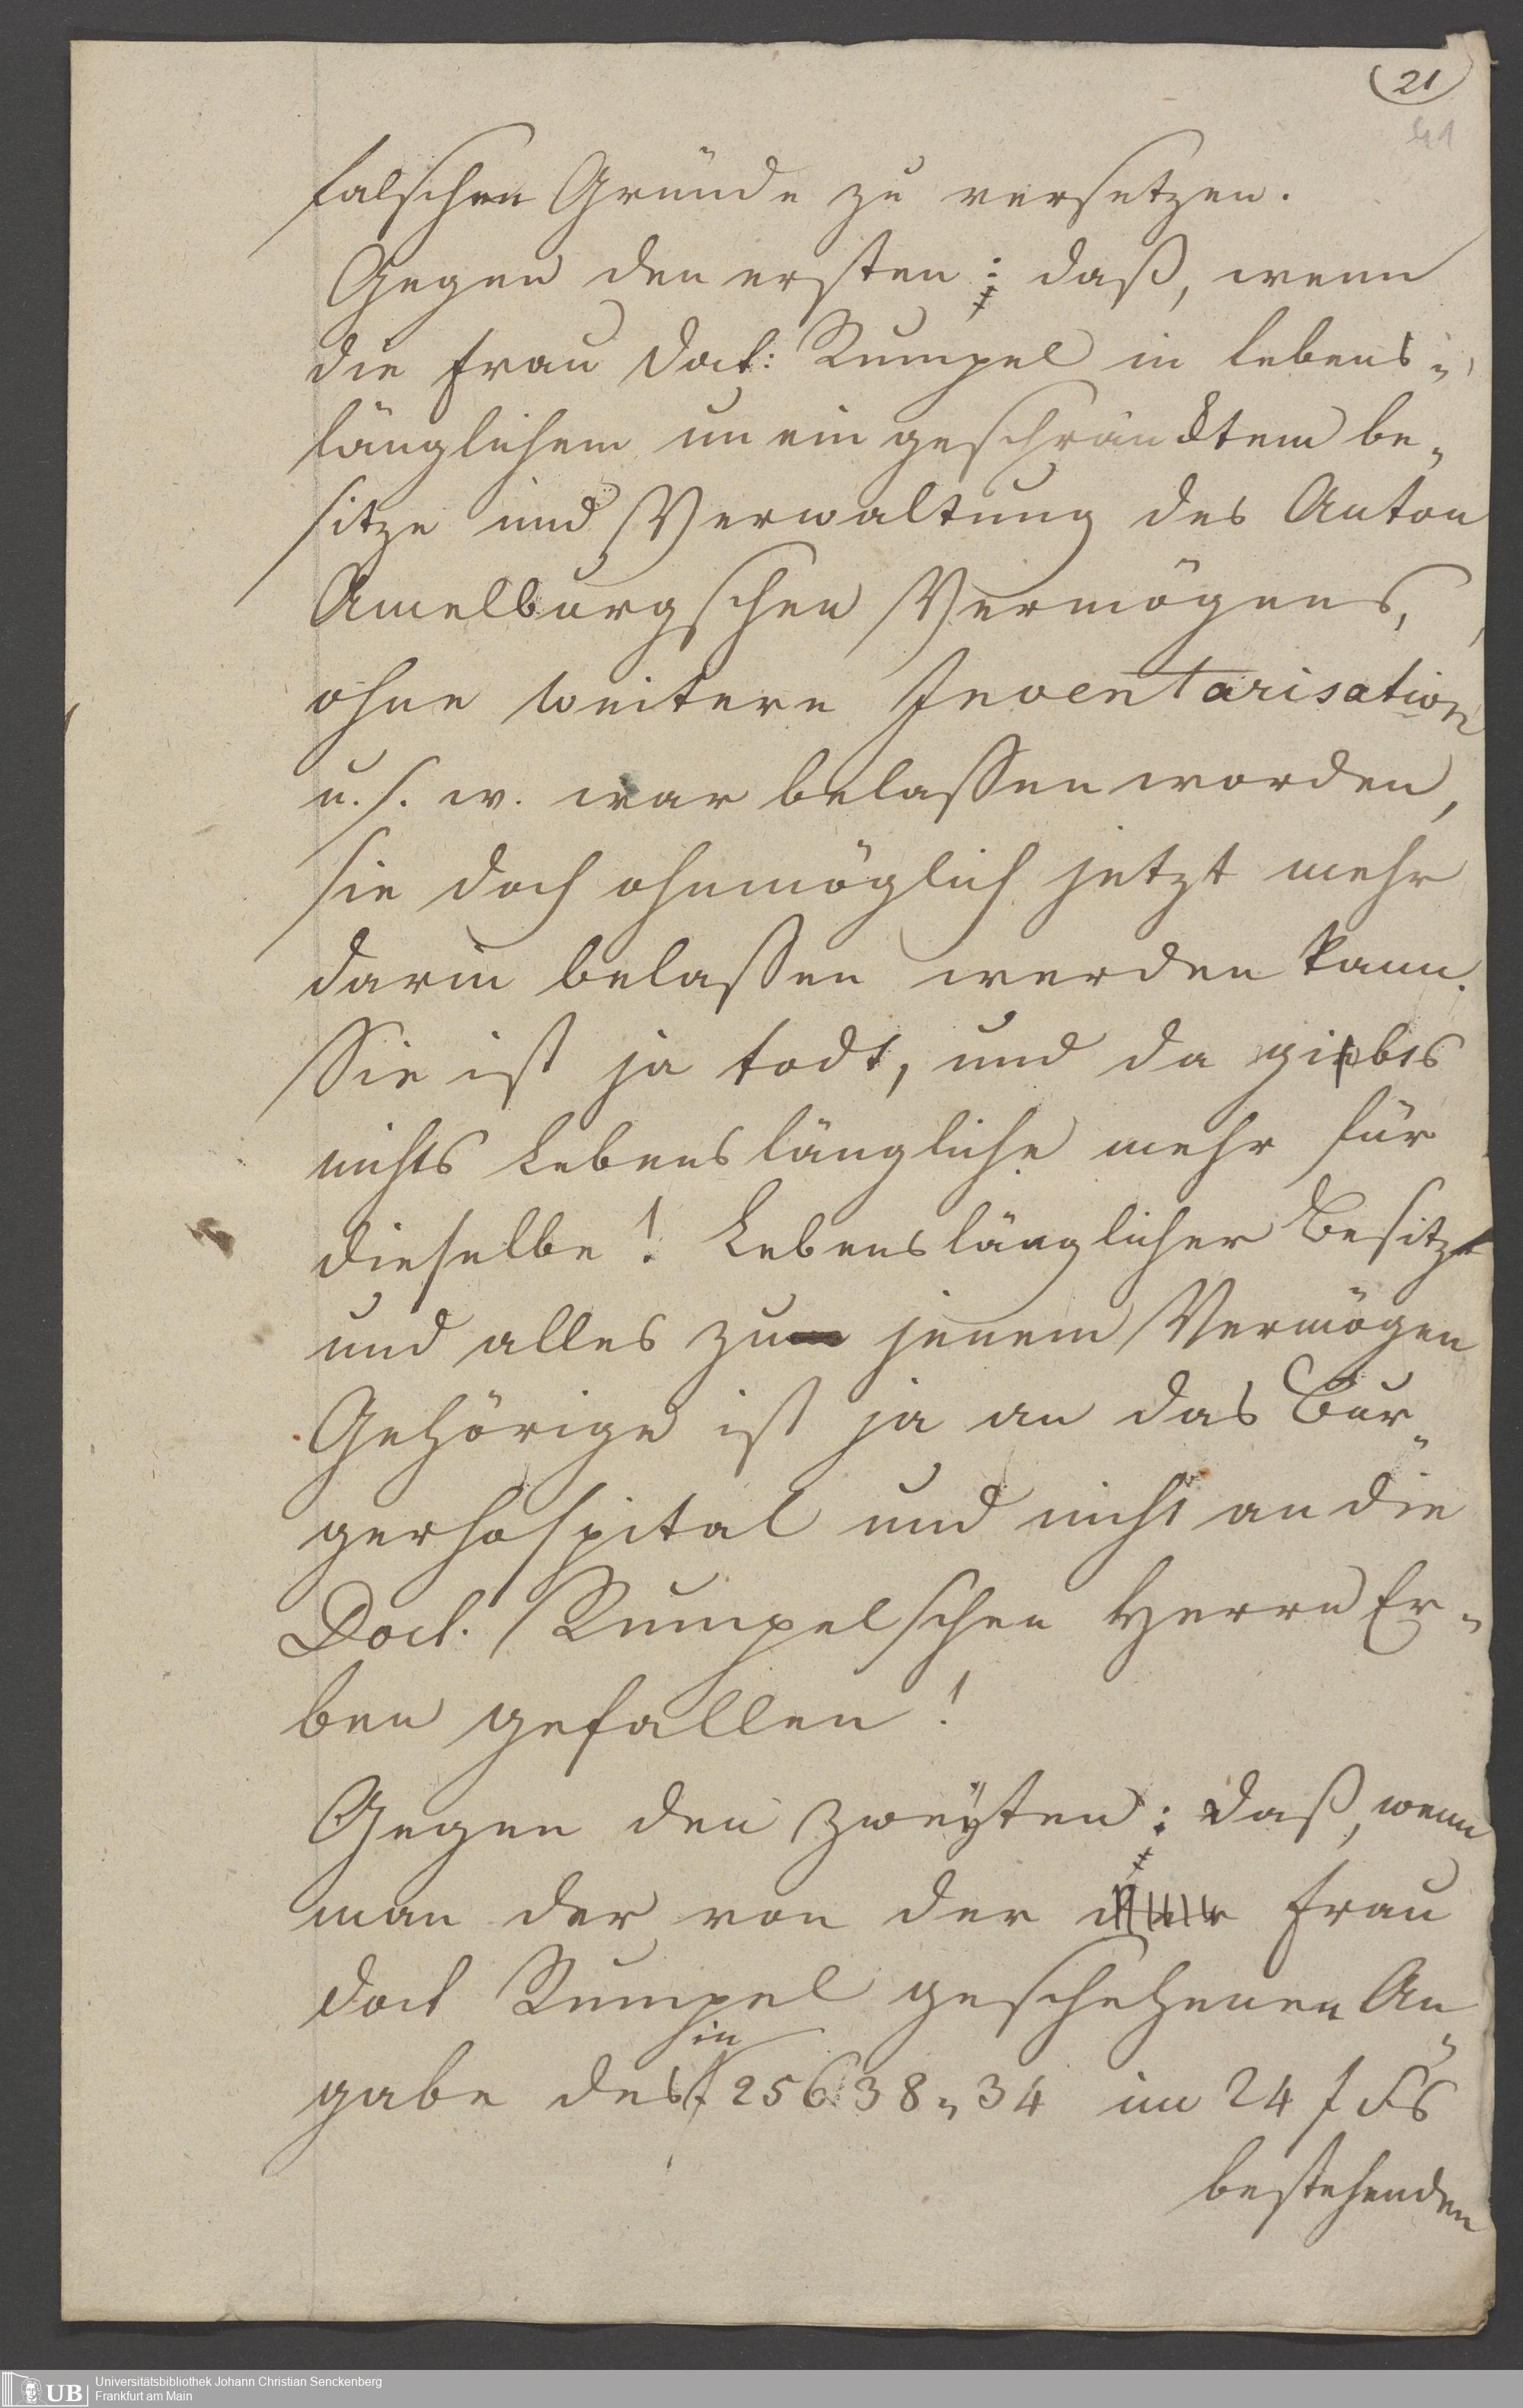 21
41
falschen Gründe zu versetzen.
Gegen den ersten: daß, wenn
die Frau Doct: Rumpel in lebens„
länglichem uneingeschränktem be„
sitze und Verwaltung des Anton
Amelburgschen Vermögens,
ohne weitere Inventarisation
u. s. w. war belassen worden,
sie doch ohnmöglich jetzt mehr
darin belassen werden kann.
Sie ist ja todt, und da giebts
nichts Lebenslängliche mehr für
dieselbe! Lebenslänglicher Besitz
und alles zu jenem Vermögen
Gehörige ist ja an das Bür„
gerhospital und nicht an die
Doct. Rumpelschen Herrn Er„
ben gefallen!
Gegen den zweÿten: daß, wenn
man der von der Frau
Doct Rumpel geschehenen An„
gabe des in f 25638„34 im 24 f Fß
bestehenden
UB Universitätsbibliothek Johann Christian Senckenberg
Frankfurt am Main